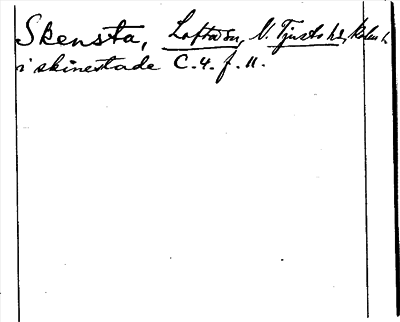 Skensta, Lofta sn, N. Tjusts hd, Kalm. l.
i skinestade C. 4. f. 11.